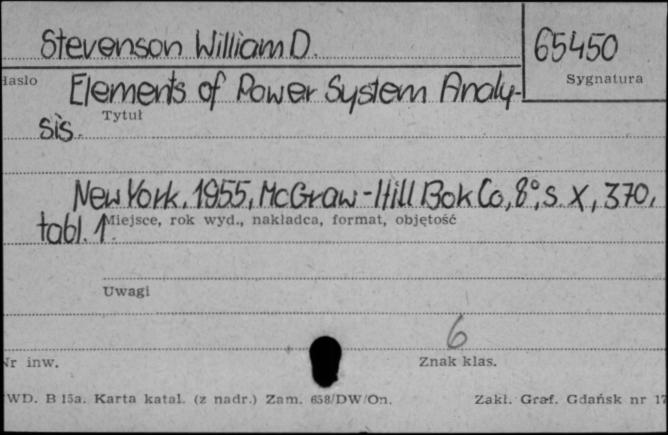 Stevenson William D.
65450
Hasło
Sygnatura
Elements of Power System Analy-
Tytuł
sis.
New York, 1955, McGraw-Hill Bok Co, 8°, s. X, 370,
tabl. 1.
Miejsce, rok wyd., nakładca, format, objętość
Uwagi
6
Nr inw.
Znak klas.
WD. B 15a. Karta katal. (z nadr.) Zam. 658/DW/On.
Zakł. Graf. Gdańsk nr 17